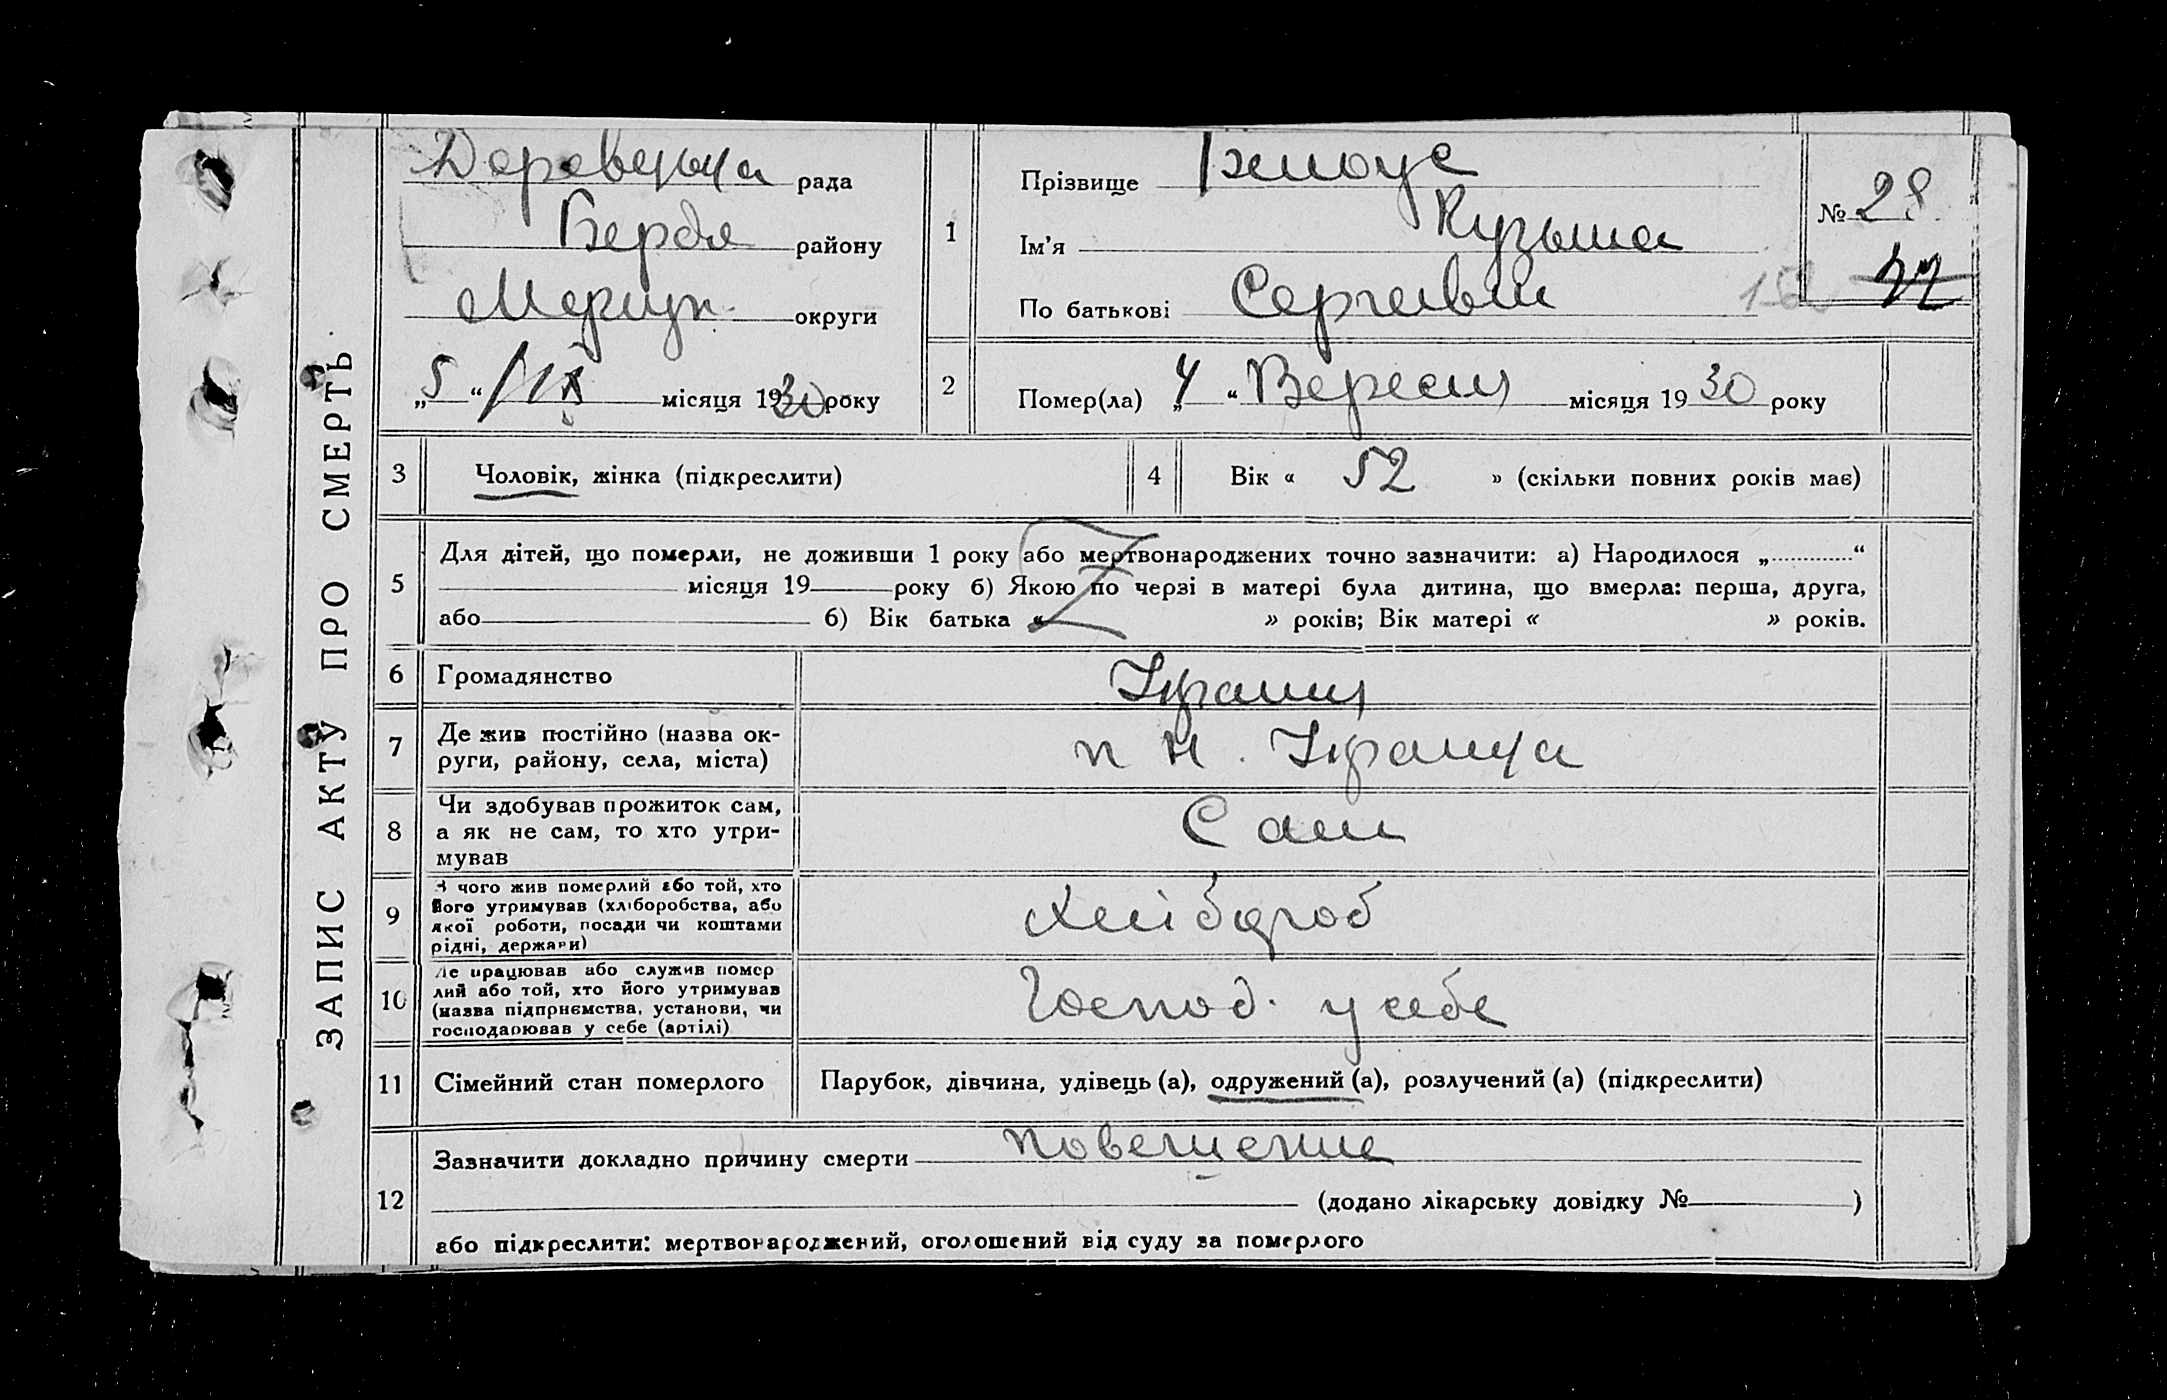 ЗАПИС АКТУ ПРО СМЕРТЬ
рада
Бердя району
округи
„5“ / IX місяця 1930 року
1
Прізвище
Ім'я Кузьма
По батькові
№ 28
2
Помер(ла) „4“ Вересня місяця 1930 року
3
Чоловік, жінка (підкреслити)
4
Вік « 52 » (скільки повних років має)
5
Для дітей, що померли, не доживши 1 року або мертвонароджених точно зазначити: а) Народилося „ “
місяця 19 року б) Якою по черзі в матері була дитина, що вмерла: перша, друга,
або б) Вік батька « » років; Вік матері « » років.
6
Громадянство
7
Де жив постійно (назва ок-
руги, району, села, міста)
8
Чи здобував прожиток сам,
а як не сам, то хто утри-
мував
Сам
9
З чого жив померлий або той, хто
його утримував (хліборобства, або
якої роботи, посади чи коштами
рідні, держави)
Хлібороб
10
Де працював або служив помер
лий або той, хто його утримував
(назва підприємства, установи, чи
господарював у себе (артілі)
Господ. у себе
11
Сімейний стан померлого
Парубок, дівчина, удівець (а), одружений (а), розлучений (а) (підкреслити)
12
Зазначити докладно причину смерти повешение
(додано лікарську довідку № )
або підкреслити: мертвонароджений, оголошений від суду за померлого